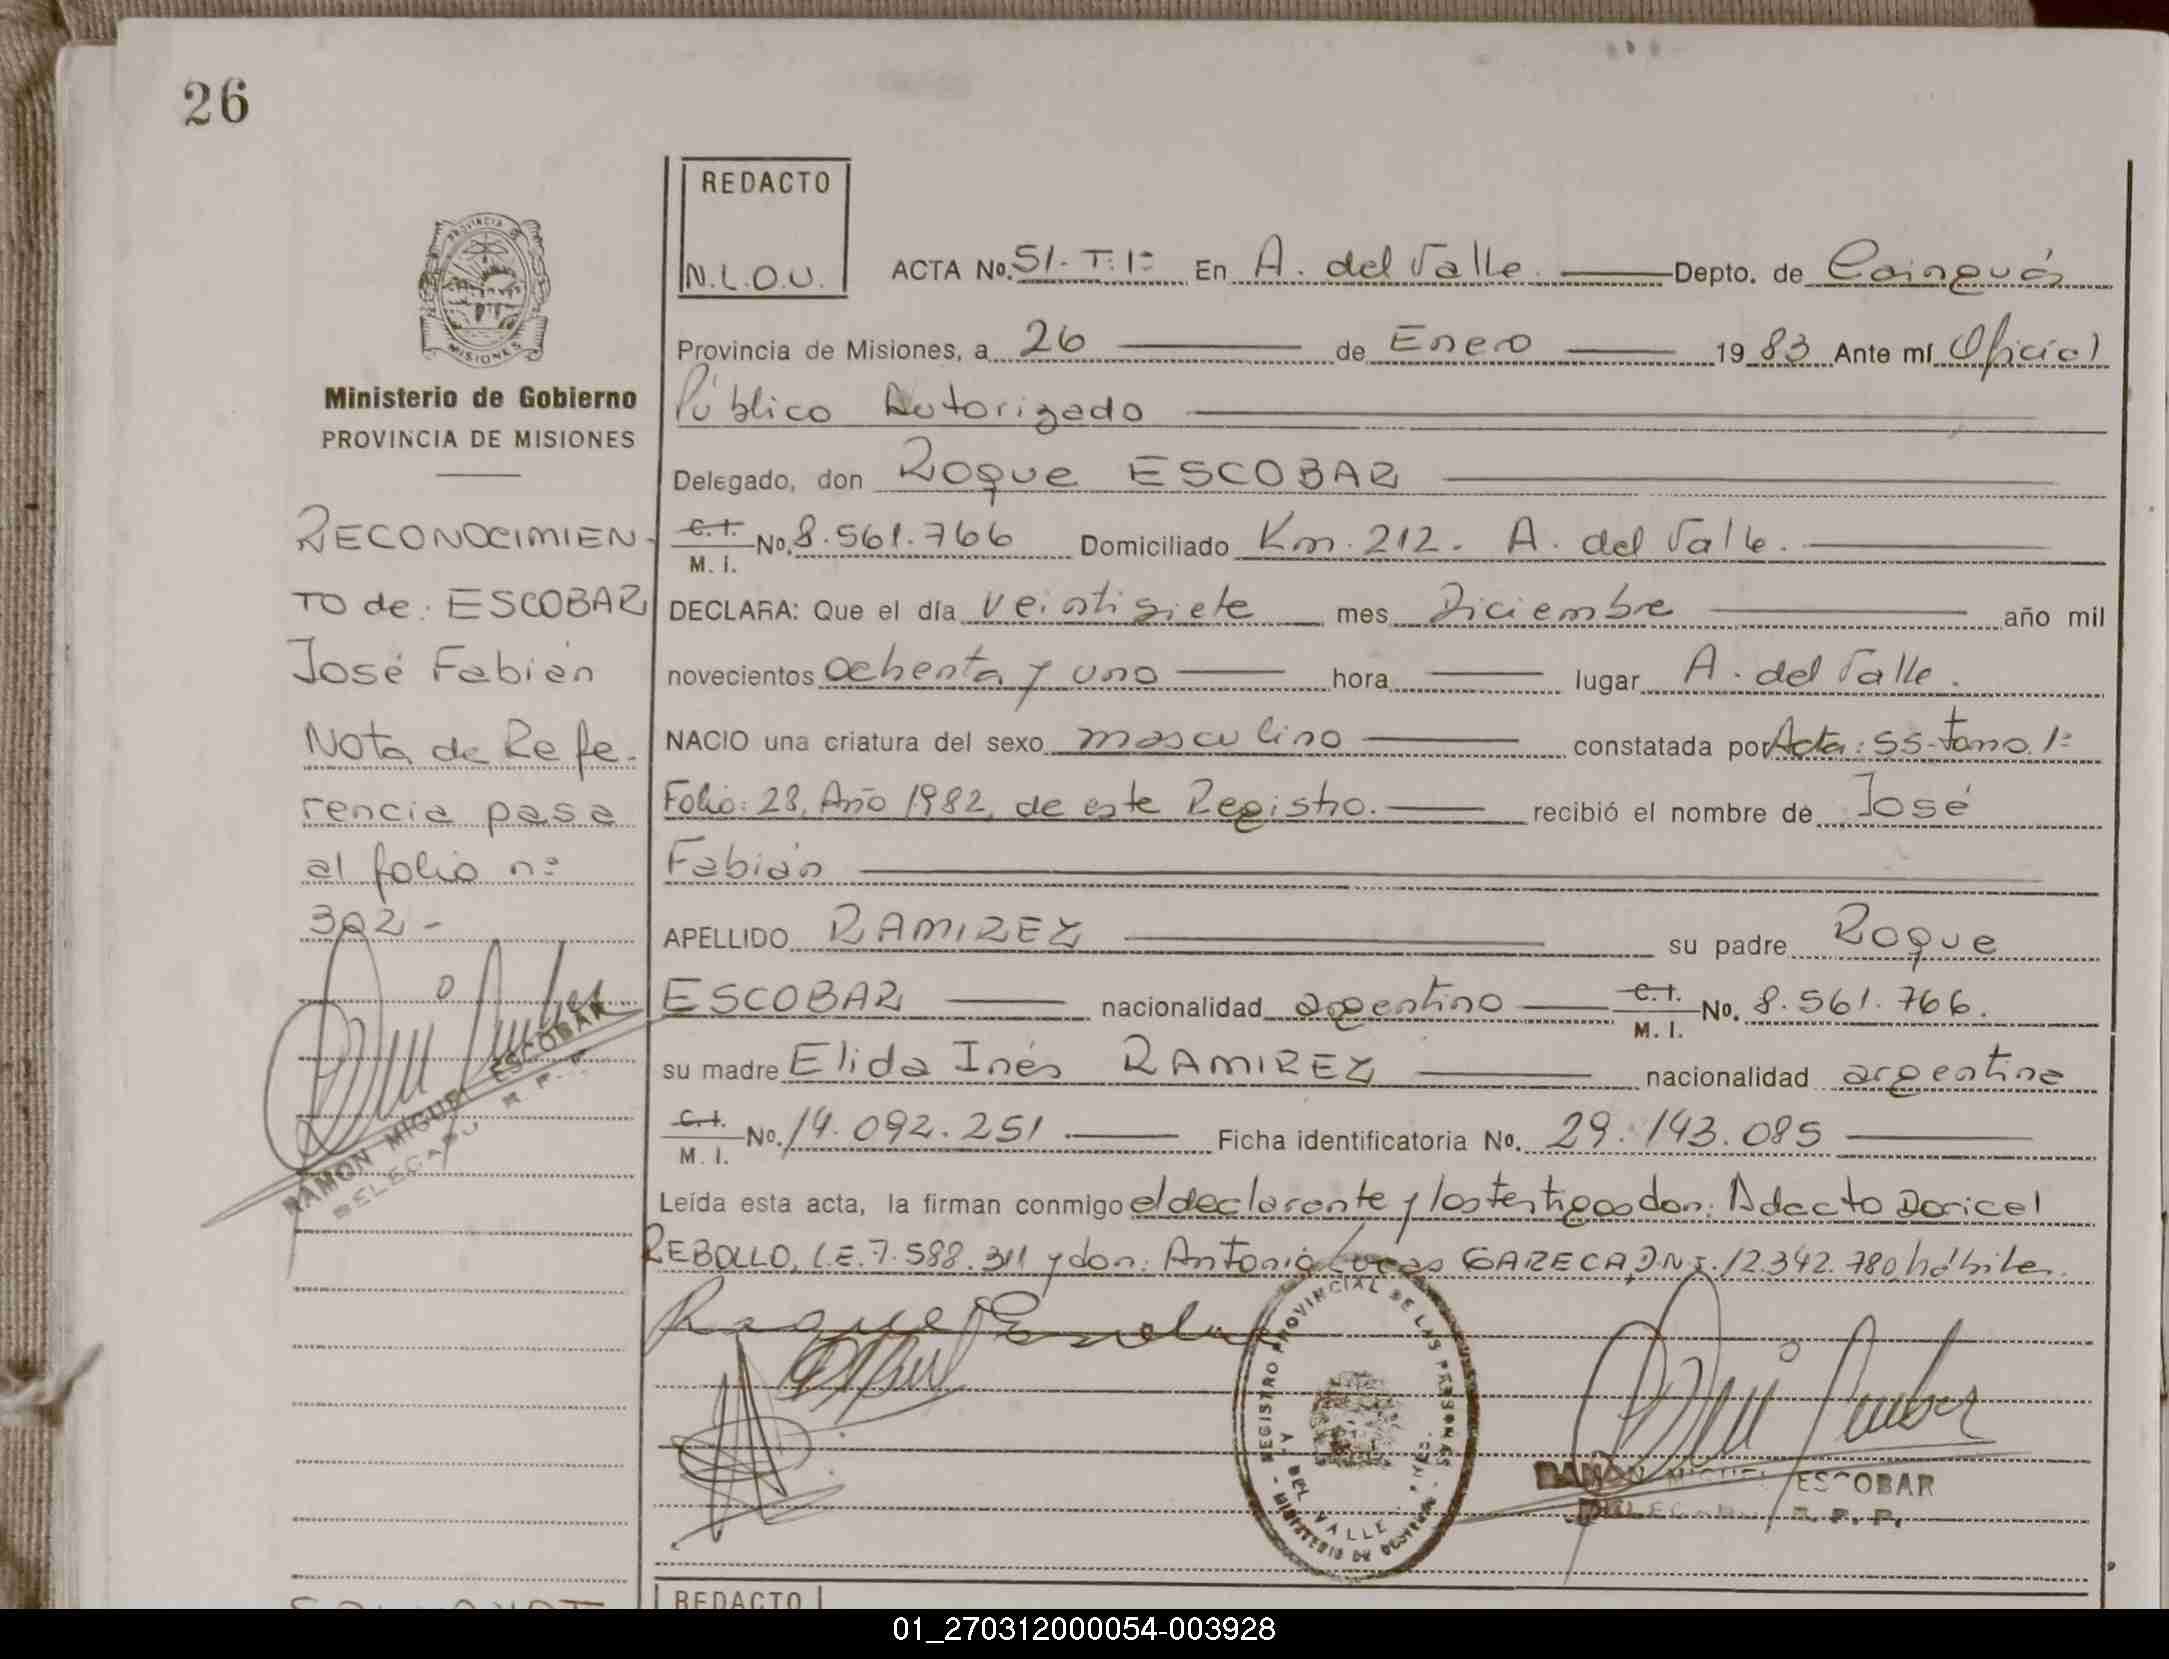 26
REDACTO
N.L.O.U.
PROVINCIA D
MISIONES
Ministerio de Gobierno
PROVINCIA DE MISIONES
RECONOCIMIEN-
TO de: ESCOBAR
José Fabián
Nota de Refe-
rencia pasa
al folio nº
302-
RAMON MIGUEL ESCOBAR
DELEGADO R.P.P.
ACTA No. 51- T: 1º En A. del Valle. Depto. de Cainguás
Provincia de Misiones, a 26 de Enero 19 83 Ante mí Oficial
Público Autorizado
Delegado, don Roque ESCOBAR
C.I. M.I. No. 8.561.766 Domiciliado Km. 212. A. del Valle.
DECLARA: Que el día veintisiete mes Diciembre año mil
novecientos ochenta y uno hora lugar A. del Valle.
NACIO una criatura del sexo masculino constatada por Acta: 55-Tomo. 1º
Folio: 28, Año 1982, de este Registro. recibió el nombre de José
Fabián
APELLIDO RAMIREZ su padre Roque
ESCOBAR nacionalidad argentino C.I. M.I. No. 8.561.766.
su madre Elida Inés RAMIREZ nacionalidad argentina
C.I. M.I. No. 14.092.251 Ficha identificatoria No. 29.143.085
Leída esta acta, la firman conmigo el declarante y los testigos don: Adacto Doricel
REBOLLO, L.E. 7.588.311 y don: Antonio Lucas GARECA, D.N.I. 12.342.780, hábiles.
Roque Escobar
REGISTRO PROVINCIAL DE LAS PERSONAS
DEL VALLE
MINISTERIO DE GOBIERNO
RAMON MIGUEL ESCOBAR
DELEGADO R.P.P.
REDACTO
01_270312000054-003928